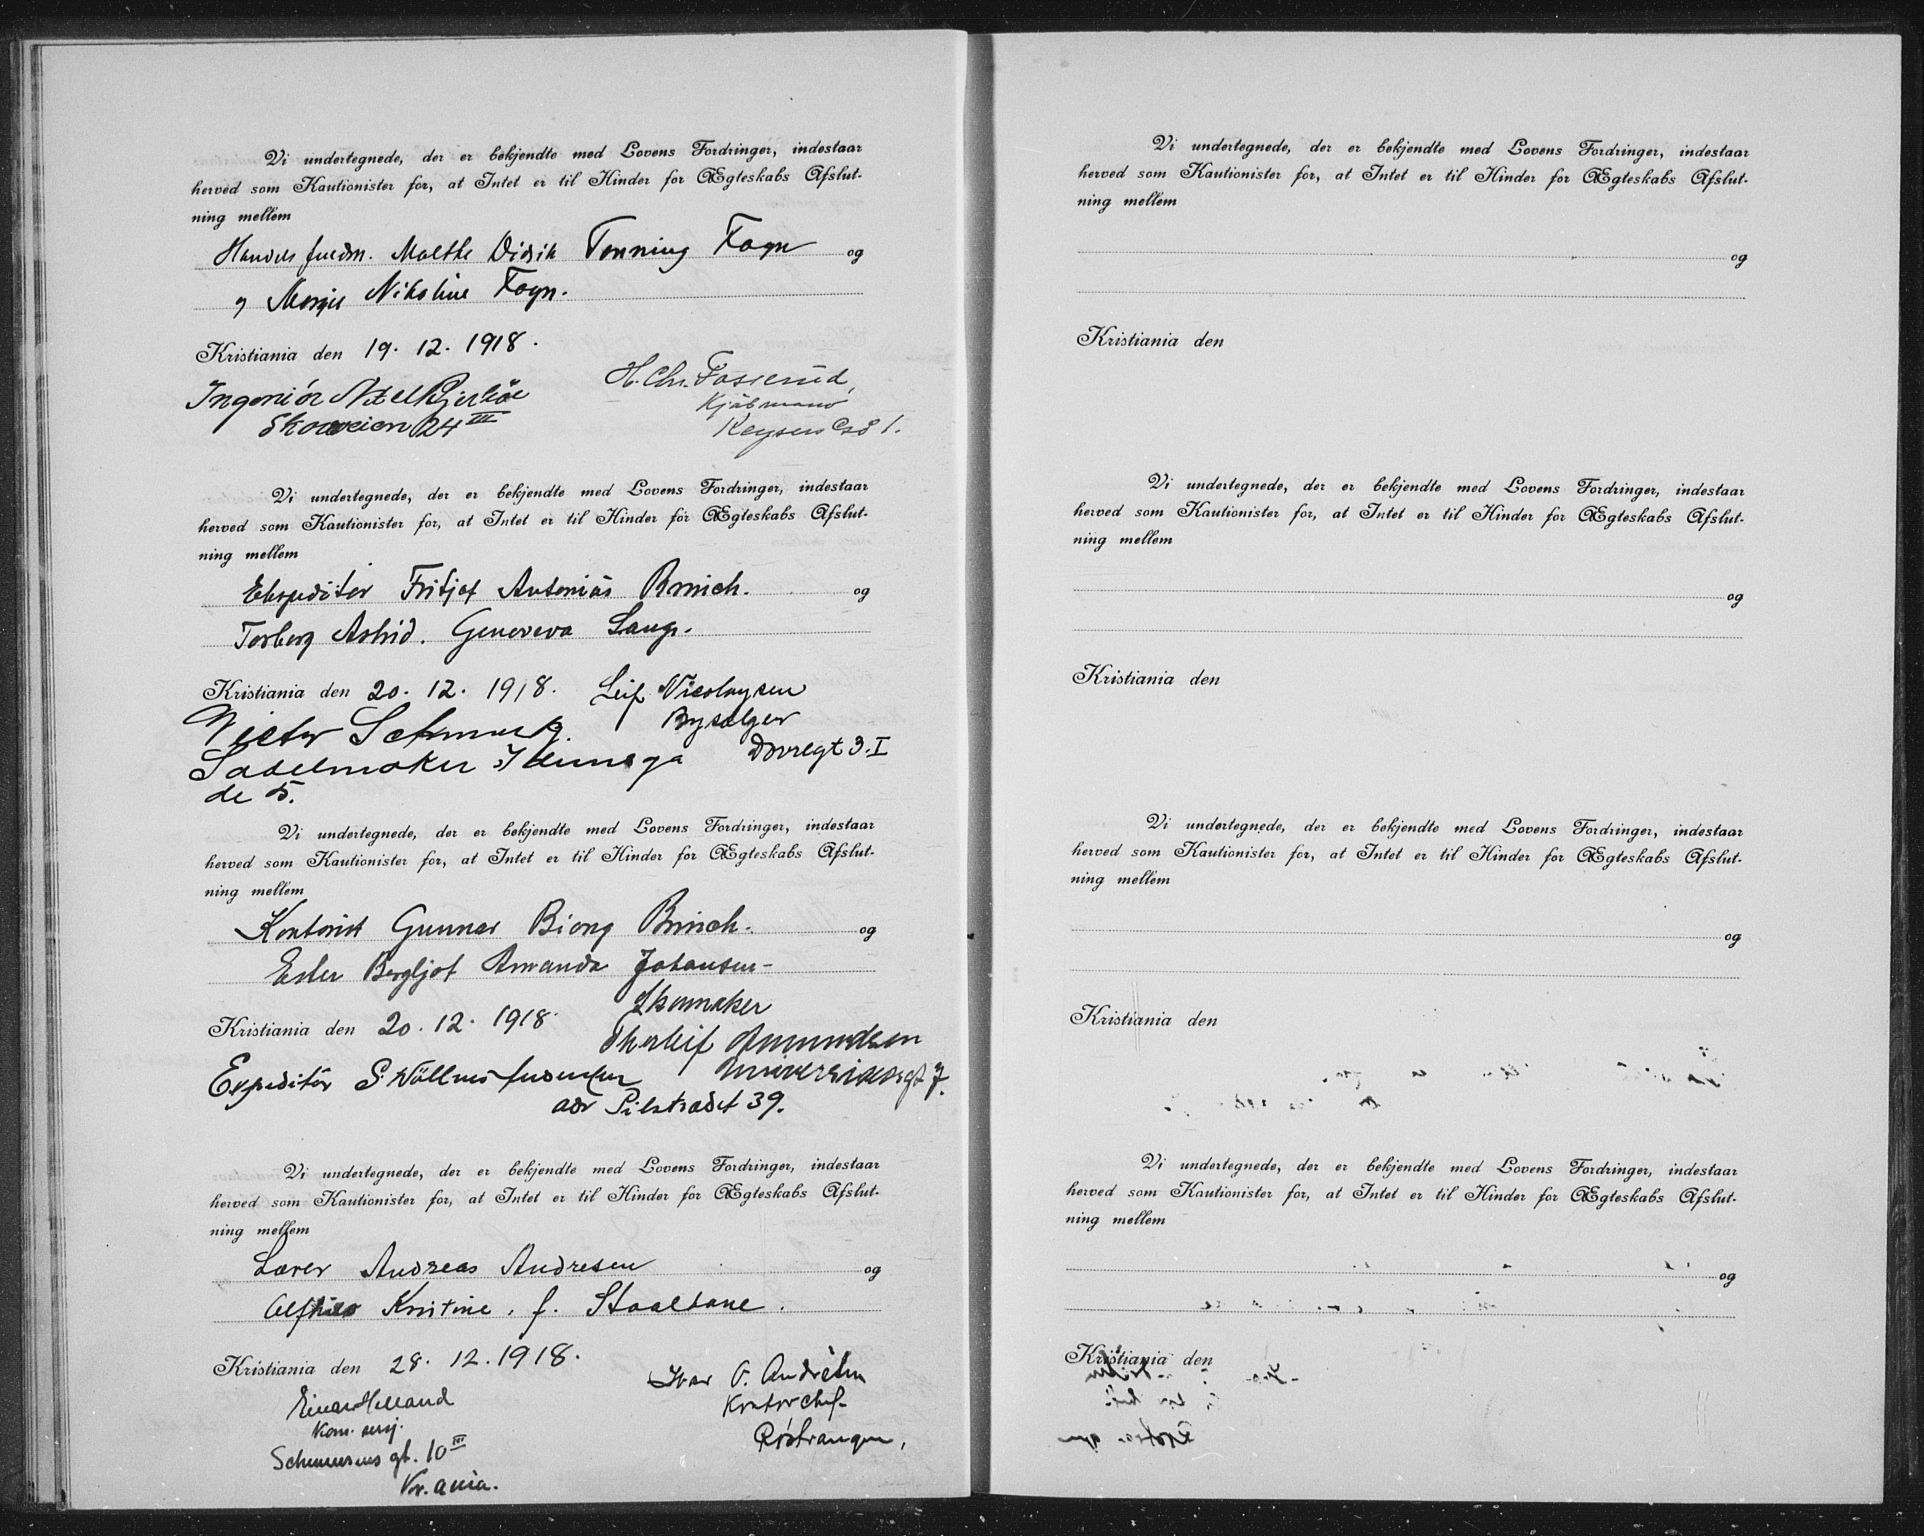 Vi undertegnede, der er bekjendte med Lovens Fordringer, indestaar
herved som Kautionister for, at Intet er til Hinder for Ægteskabs Afslut-
ning mellem
Handelsfuldm. Malthe Didrik Tonning Fogn og
og Nikoline Fogn.
Kristiania den 19. 12. 1918.
Ingeniör Axel
Skovveien 24 III
H. Chr. Fosserud,
Kjøbmand
Keysers Gt 1.
Vi undertegnede, der er bekjendte med Lovens Fordringer, indestaar
herved som Kautionister for, at Intet er til Hinder for Ægteskabs Afslut-
ning mellem
Ekspeditør Fritjof Antonius Brinch. og
Torborg Astrid. Genoveva Lang.
Kristiania den 20. 12. 1918.
Victor Schmuck.
Sadelmaker
de 5.
Leif Nicolaysen
Bysælger
Dovregt 3. I
Vi undertegnede, der er bekjendte med Lovens Fordringer, indestaar
herved som Kautionister for, at Intet er til Hinder for Ægteskabs Afslut-
ning mellem
Kontorist Gunnar Biong Brinch. og
Ester Bergljot Amanda Johansen-
Kristiania den 20. 12. 1918.
Skomaker
Thorleif Amundsen
Universitetsgt 7.
Expeditör
adr Pilestrædet 39.
Vi undertegnede, der er bekjendte med Lovens Fordringer, indestaar
herved som Kautionister for, at Intet er til Hinder for Ægteskabs Afslut-
ning mellem
Lærer Andreas Andresen og
Kristine. f. Staalhane.
Kristiania den 28. 12. 1918.
Einar Helland
gt. 10 III
Kr.ania.
Ivar O. Andresen
Kontorchef
Vi undertegnede, der er bekjendte med Lovens Fordringer, indestaar
herved som Kautionister for, at Intet er til Hinder for Ægteskabs Afslut-
ning mellem
og
Kristiania den
Vi undertegnede, der er bekjendte med Lovens Fordringer, indestaar
herved som Kautionister for, at Intet er til Hinder for Ægteskabs Afslut-
ning mellem
og
Kristiania den
Vi undertegnede, der er bekjendte med Lovens Fordringer, indestaar
herved som Kautionister for, at Intet er til Hinder for Ægteskabs Afslut-
ning mellem
og
Kristiania den
Vi undertegnede, der er bekjendte med Lovens Fordringer, indestaar
herved som Kautionister for, at Intet er til Hinder for Ægteskabs Afslut-
ning mellem
og
Kristiania den